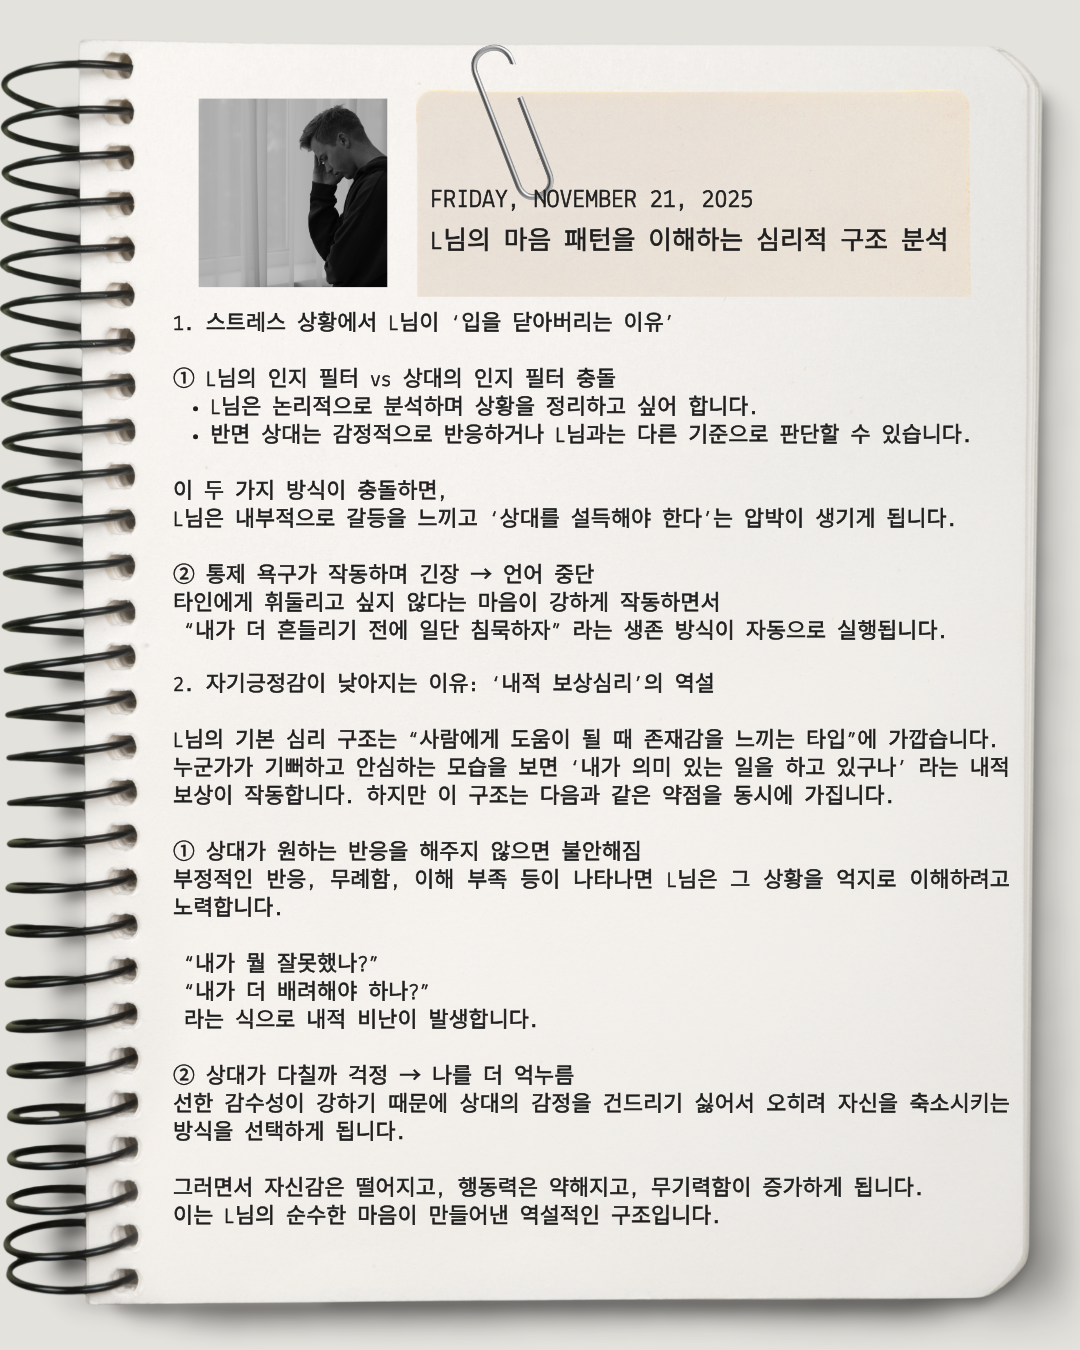 FRIDAY, NOVEMBER 21, 2025
L님의 마음 패턴을 이해하는 심리적 구조 분석
1. 스트레스 상황에서 L님이 ‘입을 닫아버리는 이유’
① L님의 인지 필터 vs 상대의 인지 필터 충돌
• L님은 논리적으로 분석하며 상황을 정리하고 싶어 합니다.
• 반면 상대는 감정적으로 반응하거나 L님과는 다른 기준으로 판단할 수 있습니다.
이 두 가지 방식이 충돌하면,
L님은 내부적으로 갈등을 느끼고 ‘상대를 설득해야 한다’는 압박이 생기게 됩니다.
② 통제 욕구가 작동하며 긴장 → 언어 중단
타인에게 휘둘리고 싶지 않다는 마음이 강하게 작동하면서
“내가 더 흔들리기 전에 일단 침묵하자” 라는 생존 방식이 자동으로 실행됩니다.
2. 자기긍정감이 낮아지는 이유: ‘내적 보상심리’의 역설
L님의 기본 심리 구조는 “사람에게 도움이 될 때 존재감을 느끼는 타입”에 가깝습니다.
누군가가 기뻐하고 안심하는 모습을 보면 ‘내가 의미 있는 일을 하고 있구나’ 라는 내적
보상이 작동합니다. 하지만 이 구조는 다음과 같은 약점을 동시에 가집니다.
① 상대가 원하는 반응을 해주지 않으면 불안해짐
부정적인 반응, 무례함, 이해 부족 등이 나타나면 L님은 그 상황을 억지로 이해하려고
노력합니다.
“내가 뭘 잘못했나?”
“내가 더 배려해야 하나?”
라는 식으로 내적 비난이 발생합니다.
② 상대가 다칠까 걱정 → 나를 더 억누름
선한 감수성이 강하기 때문에 상대의 감정을 건드리기 싫어서 오히려 자신을 축소시키는
방식을 선택하게 됩니다.
그러면서 자신감은 떨어지고, 행동력은 약해지고, 무기력함이 증가하게 됩니다.
이는 L님의 순수한 마음이 만들어낸 역설적인 구조입니다.